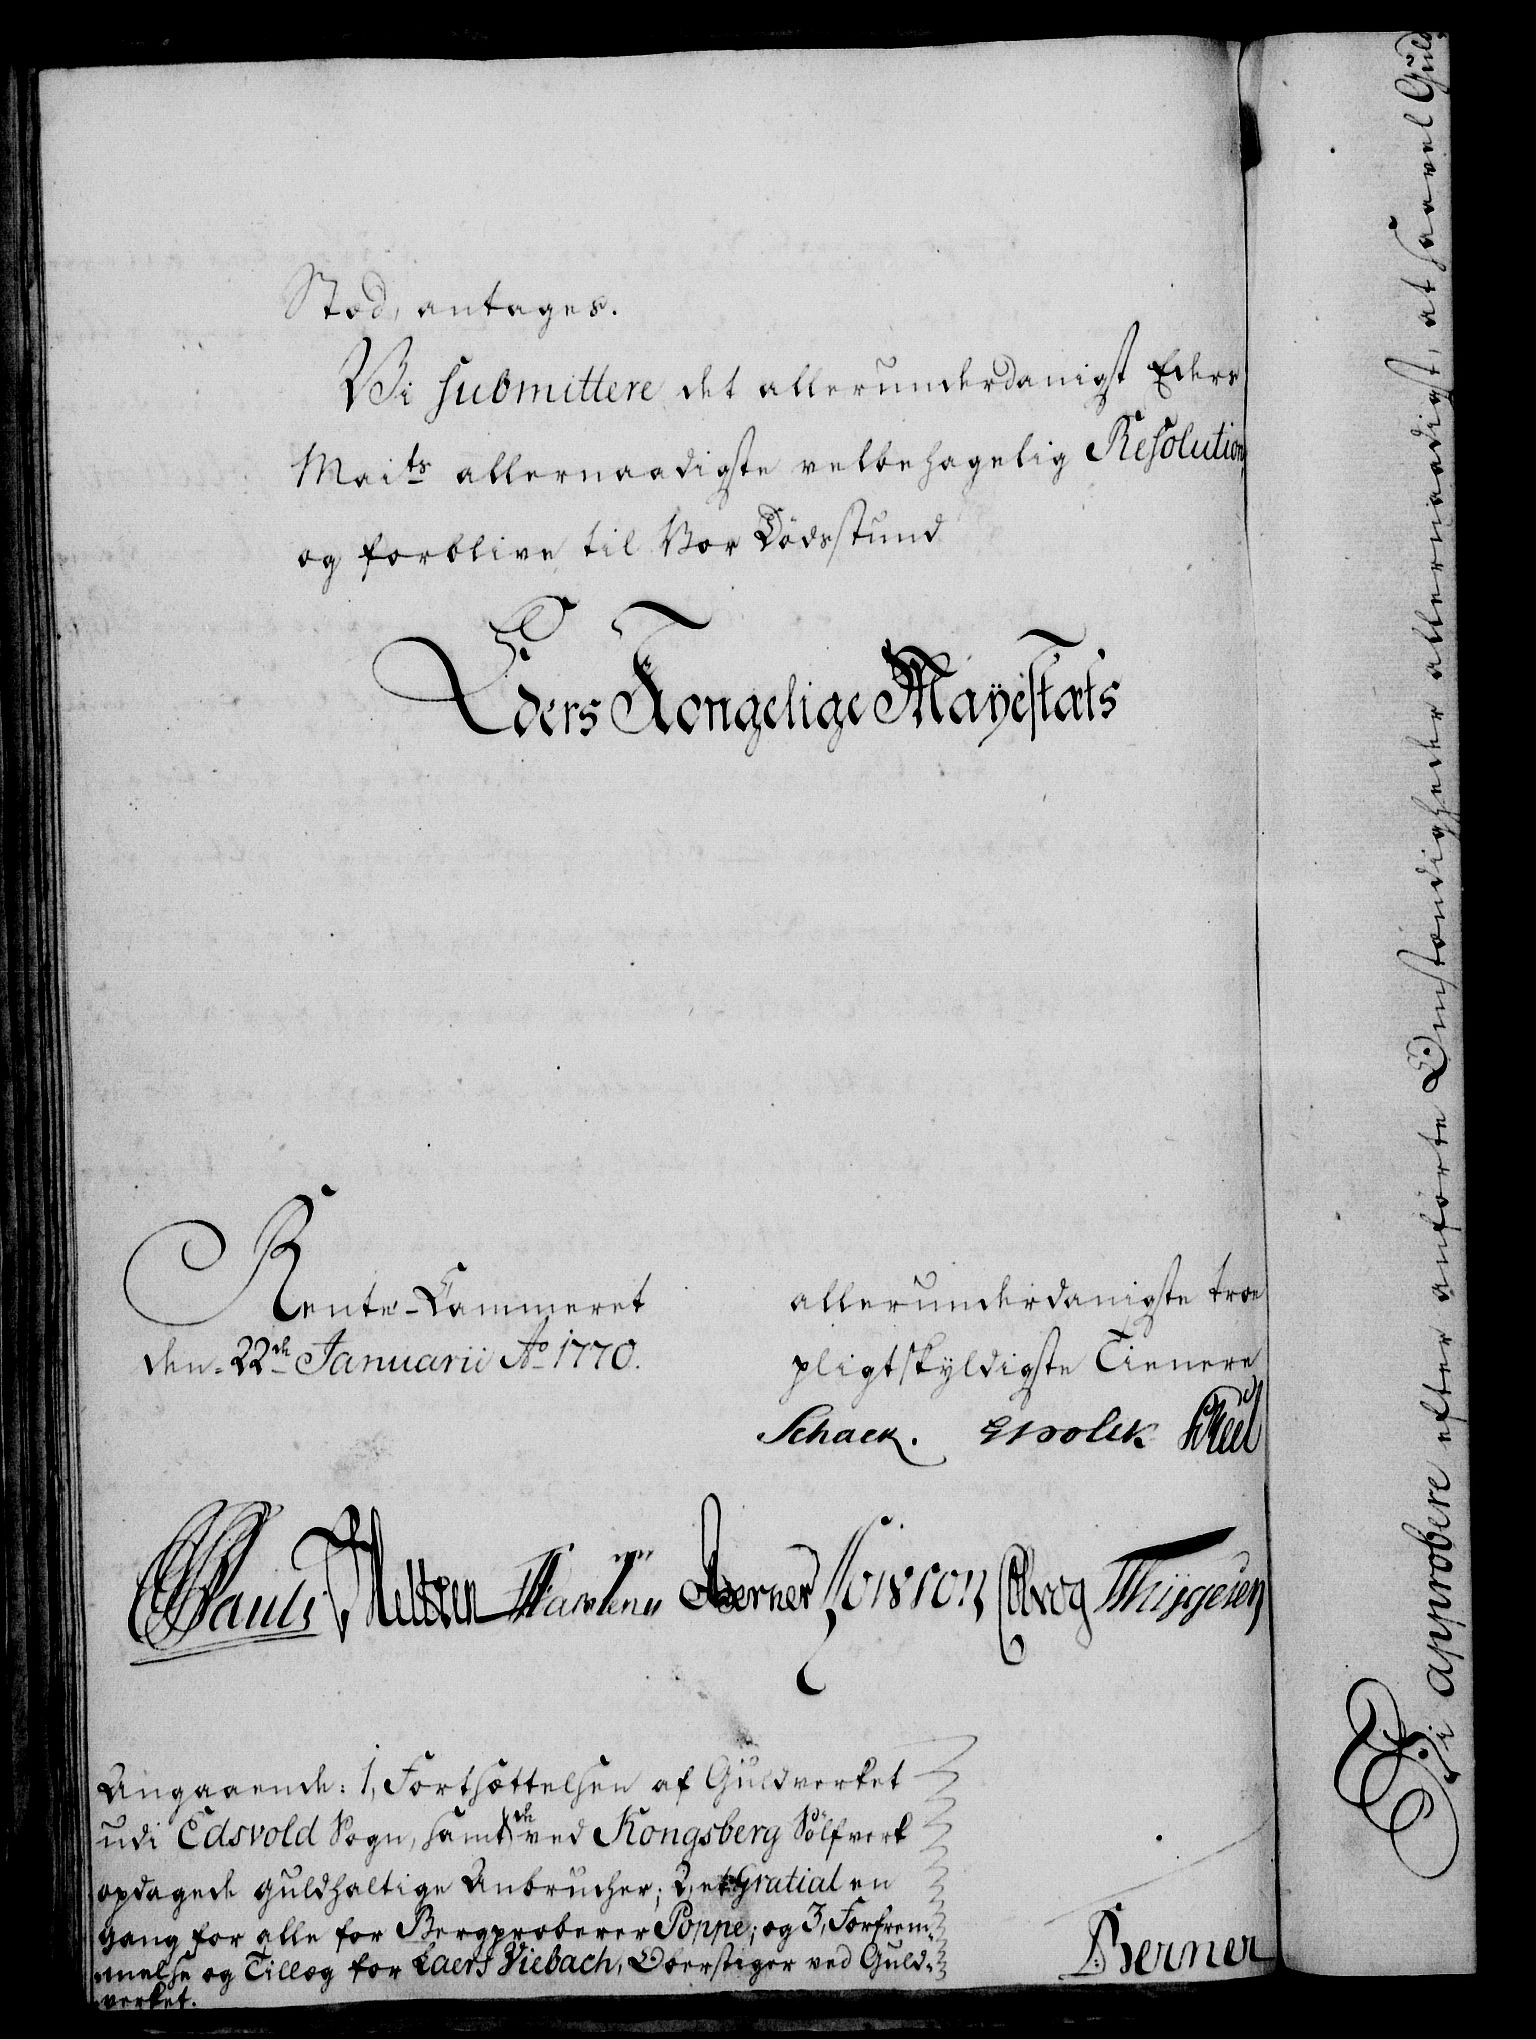 Stæd, antages.
Vi submittere det allerunderdanigst Eders
Maits allernaadigste velbehagelig Resolution,
og forblive til Vor Dödsstund
Eders Kongelige Mayestæts
Rente-Cammeret
den 22de Januarii Ao 1770.
allerunderdanigste troe
pligtskyldigste Tienere
Schack. Skeel
Berner Thygesen
Angaaende: 1, Forthsættelsen af Guldverket
udi Edsvold Sogn, samt de ved Kongsberg Sölfverk
opdagede guldhaltige Anbrucher; 2, et Gratial en
gang for alle for Bergproberer Poppe; og 3, Forfrem-
melse og Tillæg for Laers Viebach, Oberstiger ved Guld-
verket.
Berner
Vi approbere efter anförte Omstændigheder allernaadigst, at saavel Guld-